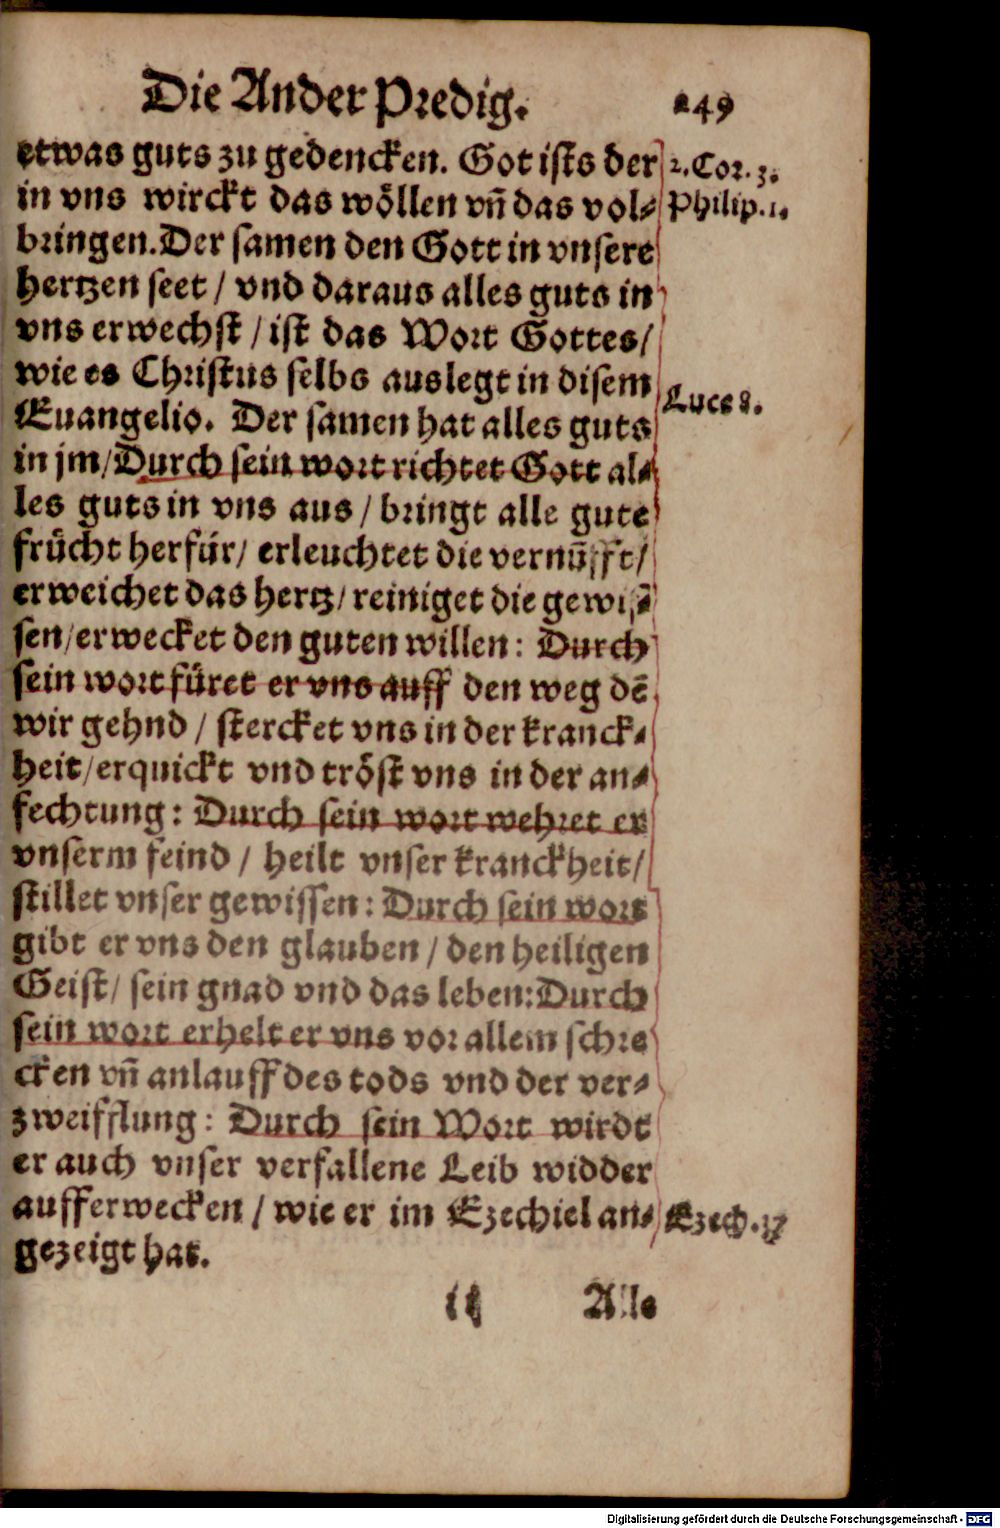 Die Ander Predig. 249
etwas guts zu gedencken. Got ists der
2. Cor. 3.
in vns wirckt das wöllen vñ das vol-
Philip. 1.
bringen. Der samen den Gott in vnsere
hertzen seet / vnd daraus alles guts in
vns erwechst / ist das Wort Gottes /
wie es Christus selbs auslegt in disem
Luce 8.
Euangelio. Der samen hat alles guts
in jm / Durch sein wort richtet Gott al-
les guts in vns aus / bringt alle gute
frücht herfür / erleuchtet die vernũfft /
erweichet das hertz / reiniget die gewis-
sen / erwecket den guten willen: Durch
sein wort füret er vns auff den weg dẽ
wir gehnd / stercket vns in der kranck-
heit / erquickt vnd tröst vns in der an-
fechtung: Durch sein wort wehret er
vnserm feind / heilt vnser kranckheit /
stillet vnser gewissen: Durch sein wort
gibt er vns den glauben / den heiligen
Geist / sein gnad vnd das leben: Durch
sein wort erhelt er vns vor allem schre
cken vñ anlauff des tods vnd der ver-
zweifflung: Durch sein Wort wirdt
er auch vnser verfallene Leib widder
aufferwecken / wie er im Ezechiel an-
Ezech. 37
gezeigt hat.
Alle
Digitalisierung gefördert durch die Deutsche Forschungsgemeinschaft - DFG